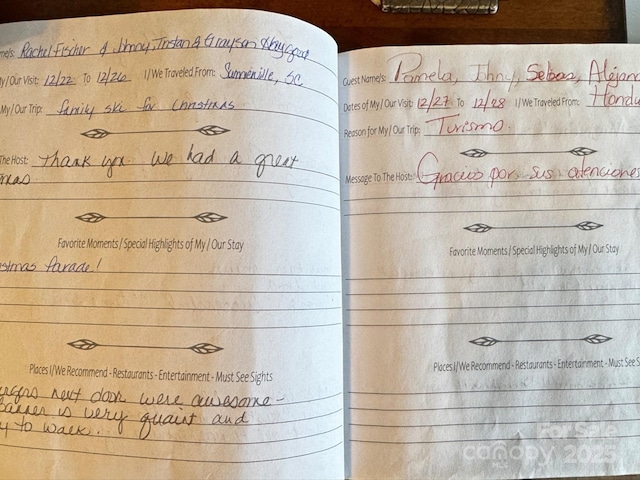 me/s: Rachel Fischer & Johnny, Tristan & Grayson
My/Our Visit: 12/22 To 12/26 I/We Traveled From: Summerville, SC
My/Our Trip: family ski for Christmas
The Host: Thank you. We had a great
mas
Favorite Moments / Special Highlights of My / Our Stay
stmas Parade!
Places I/We Recommend - Restaurants - Entertainment - Must See Sights
urgers next door were awesome -
Banner is very quaint and
y to walk.
Guest Name/s: Pamela, Jhny, Sebas, Alejan
Dates of My / Our Visit: 12/27 To 12/28 I/We Traveled From: Hondu
Reason for My / Our Trip: Turismo.
Message To The Host: Gracias por sus atenciones
Favorite Moments / Special Highlights of My / Our Stay
Places I/We Recommend - Restaurants - Entertainment - Must See S
For Sale
canopy 2025
MLS